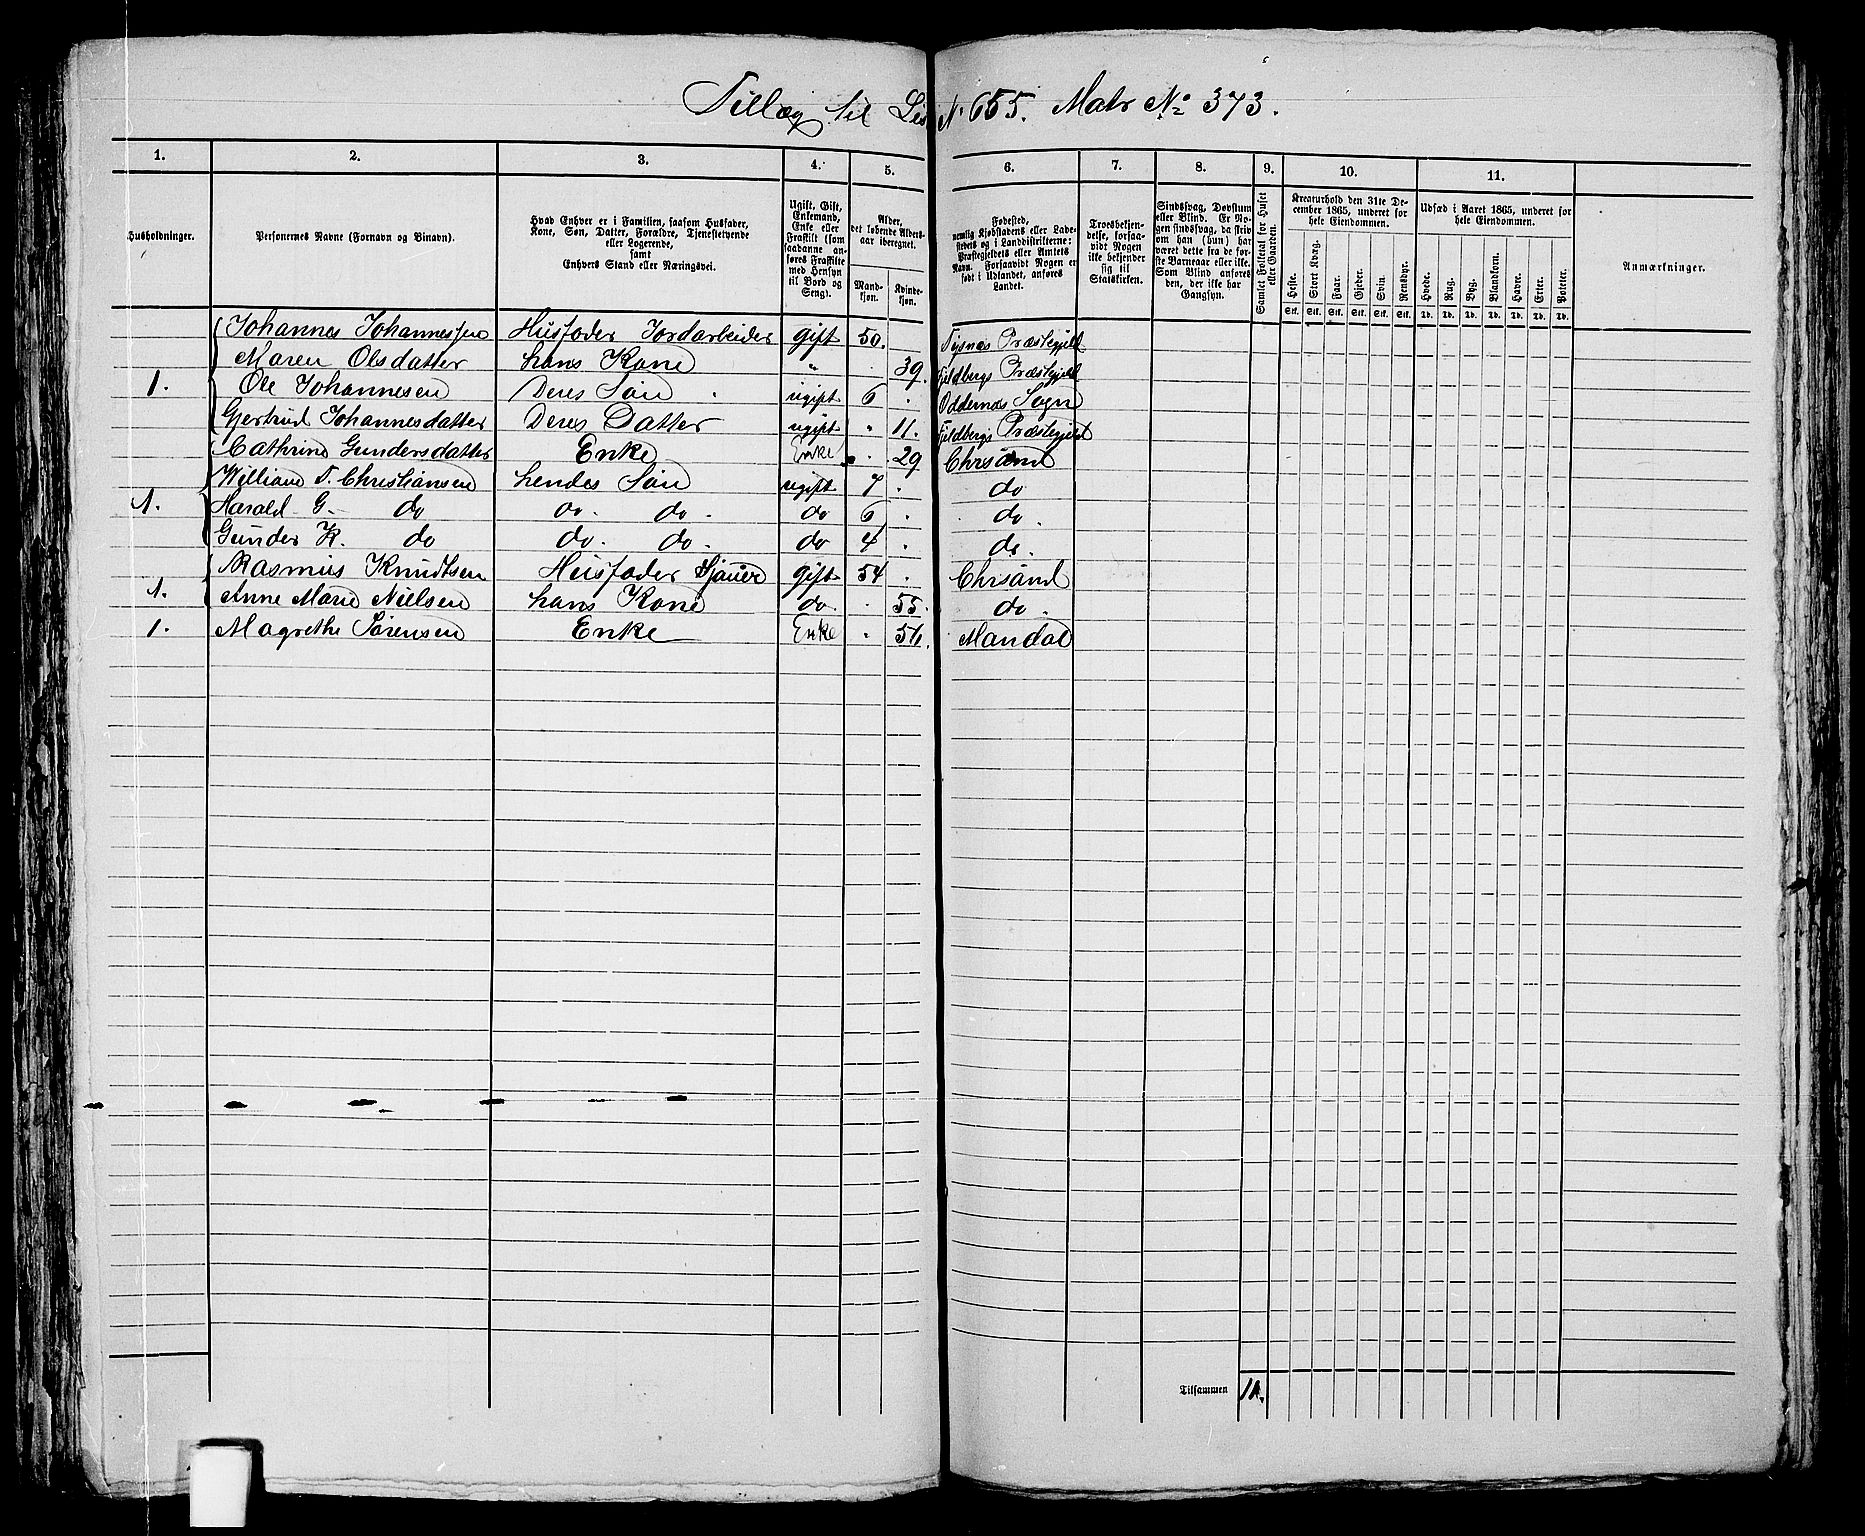 Tillæg til Lis N. 655. Matr No 373.
1. 2. 3. 4. 5. 6. 7. 8. 9. 10. 11.
Husholdninger.
Personernes Navne (Fornavn og Binavn).
Hvad Enhver er i Familien, saasom Husfader,
Kone, Søn, Datter, Forældre, Tjenestetyende
eller Logerende,
samt
Enhvers Stand eller Næringsvei.
Ugift, Gift,
Enkemand,
Enke eller
Fraskilt (som
saadanne an-
føres Fraskilte
med Hensyn
til Bord og
Seng).
Alder,
det løbende Alders-
aar iberegnet.
Mand-
kjøn.
Kvinde-
kjøn.
Fødested,
nemlig Kjøbstadens eller Lade-
stedets og i Landdistrikterne:
Præstegjeldets eller Amtets
Navn. Forsaavidt Nogen er
født i Udlandet, anføres
Landet.
Troesbekjen-
delse, forsaa-
vidt Nogen
ikke bekjender
sig til
Statskirken.
Sindssvag, Døvstum
eller Blind. Er No-
gen sindssvag, da skriv
om han (hun) har
været dette fra de før-
ste Barneaar eller ikke.
Som Blind anføres
den, der ikke har
Gangsyn.
Samlet Folketal for Huset
eller Gaarden.
Kreaturhold den 31te De-
cember 1865, underet for
hele Eiendommen.
Heste. Stort Kvæg. Faar. Gjeder. Svin. Rensdyr.
Stk. Stk. Stk. Stk. Stk. Stk.
Udsæd i Aaret 1865, underet for
hele Eiendommen.
Hvede. Rug. Byg. Blandkorn. Havre. Erter. Poteter.
Td. Td. Td. Td. Td. Td. Td.
Anmærkninger.
Johannes Johannessen Husfader Jordarbeider gift 50. Tysnæs Præstegjeld
Maren Olsdatter hans Kone " . 39. Fjeldbergs Præstegjeld
1. Ole Johannesen Deres Søn ugift 6 . Oddernæs Sogn
Gjertrud Johannesdatter Deres Datter ugift " 11. Fjeldbergs Præstegjeld
Cathrine Gundersdatter Enke Enke . 29 Chrsand
William T. Christiansen hendes Søn ugift 7 . do
1. Harald G. do do. do. do 6 . do.
Gunder K. do do. do. do 4 . do.
Rasmus Knudtsen Husfader Sjauer gift 54 . Chrsand
1. Anne Marie Nielsen hans Kone do. . 55. do.
1. Magrethe Sørensen Enke Enke " 56. Mandal
Tilsammen 11.